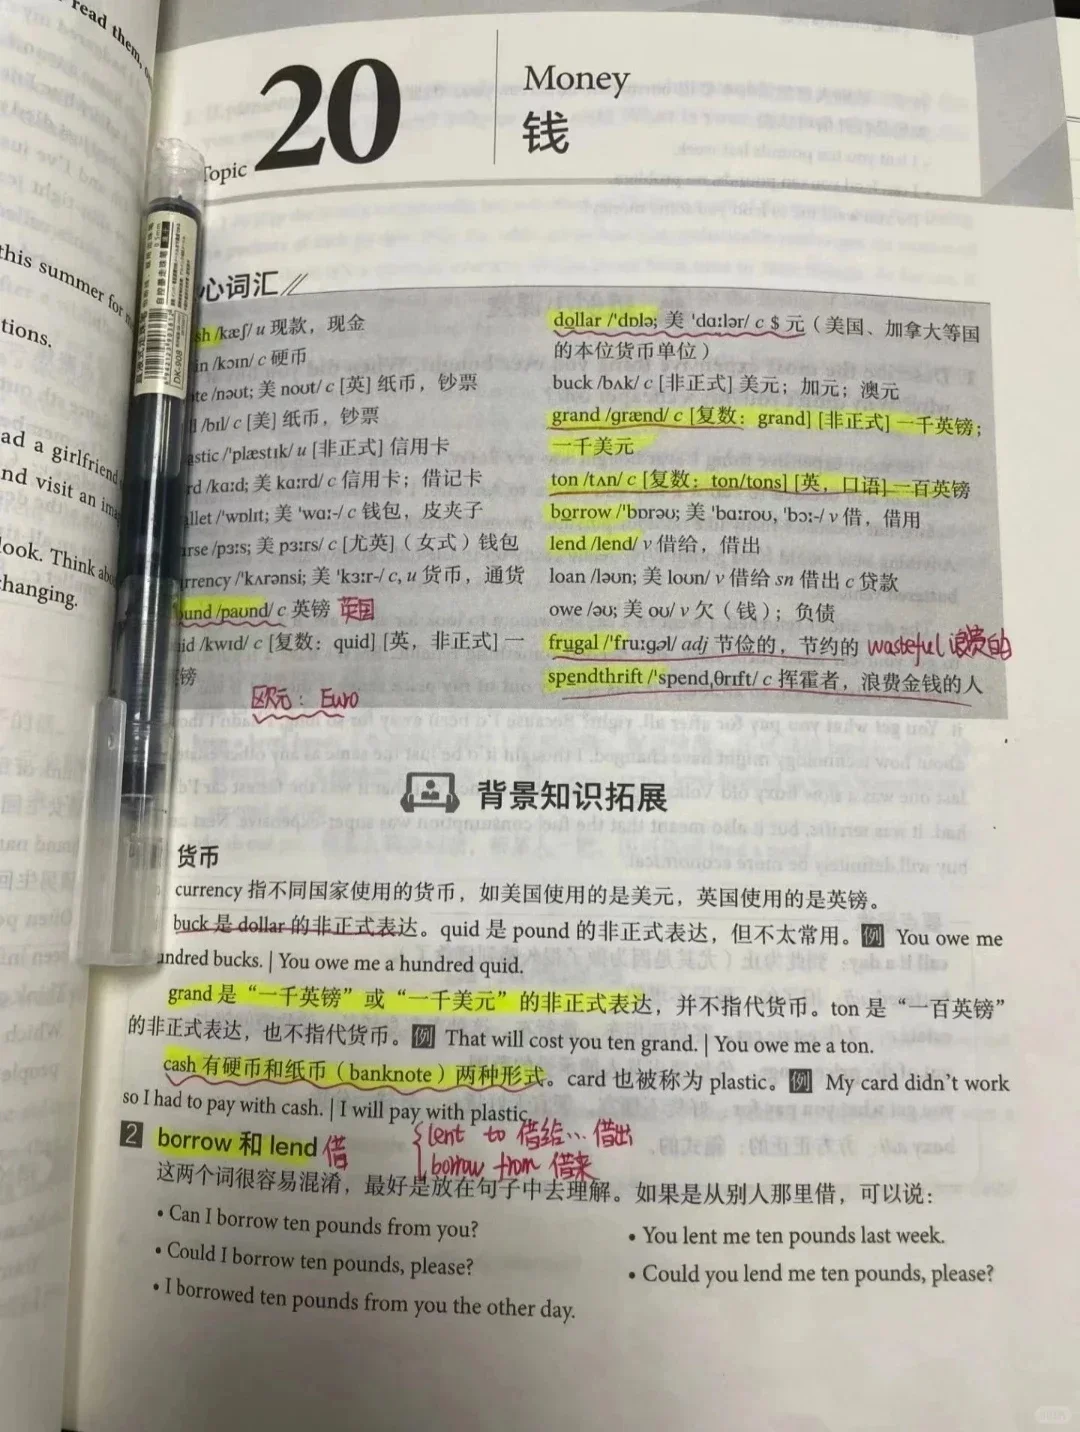 read them,
this summer for
tions.
ad a girlfriend
nd visit an
look. Think
changing.
DK-908
Topic 20
Money
钱
心词汇
sh /kæʃ/ u 现款，现金
in /kɔɪn/ c 硬币
te /nəʊt; 美 noʊt/ c [英] 纸币，钞票
l /bɪl/ c [美] 纸币，钞票
astic /'plæstɪk/ u [非正式] 信用卡
rd /kɑːd; 美 kɑːrd/ c 信用卡；借记卡
allet /'wɒlɪt; 美 'wɑː-/ c 钱包，皮夹子
urse /pɜːs; 美 pɜːrs/ c [尤英]（女式）钱包
urrency /'kʌrənsi; 美 'kɜːr-/ c, u 货币，通货
ound /paʊnd/ c 英镑 英国
uid /kwɪd/ c [复数：quid] [英，非正式] 一
镑
欧元：Euro
dollar /'dɒlə; 美 'dɑːlər/ c $ 元（美国、加拿大等国
的本位货币单位）
buck /bʌk/ c [非正式] 美元；加元；澳元
grand /grænd/ c [复数：grand] [非正式] 一千英镑；
一千美元
ton /tʌn/ c [复数：ton/tons] [英，口语] 一百英镑
borrow /'bɒrəʊ; 美 'bɑːroʊ, 'bɔː-/ v 借，借用
lend /lend/ v 借给，借出
loan /ləʊn; 美 loʊn/ v 借给 sn 借出 c 贷款
owe /əʊ; 美 oʊ/ v 欠（钱）；负债
frugal /'fruːgəl/ adj 节俭的，节约的 wasteful 浪费的
spendthrift /'spendˌθrɪft/ c 挥霍者，浪费金钱的人
背景知识拓展
货币
currency 指不同国家使用的货币，如美国使用的是美元，英国使用的是英镑。
buck 是 dollar 的非正式表达。quid 是 pound 的非正式表达，但不太常用。例 You owe me
undred bucks. | You owe me a hundred quid.
grand 是“一千英镑”或“一千美元”的非正式表达，并不指代货币。ton 是“一百英镑”
的非正式表达，也不指代货币。例 That will cost you ten grand. | You owe me a ton.
cash 有硬币和纸币（banknote）两种形式。card 也被称为 plastic。例 My card didn't work
so I had to pay with cash. | I will pay with plastic.
2 borrow 和 lend 借
lent to 借给… 借出
borrow from 借来
这两个词很容易混淆，最好是放在句子中去理解。如果是从别人那里借，可以说：
• Can I borrow ten pounds from you?
• Could I borrow ten pounds, please?
• I borrowed ten pounds from you the other day.
• You lent me ten pounds last week.
• Could you lend me ten pounds, please?